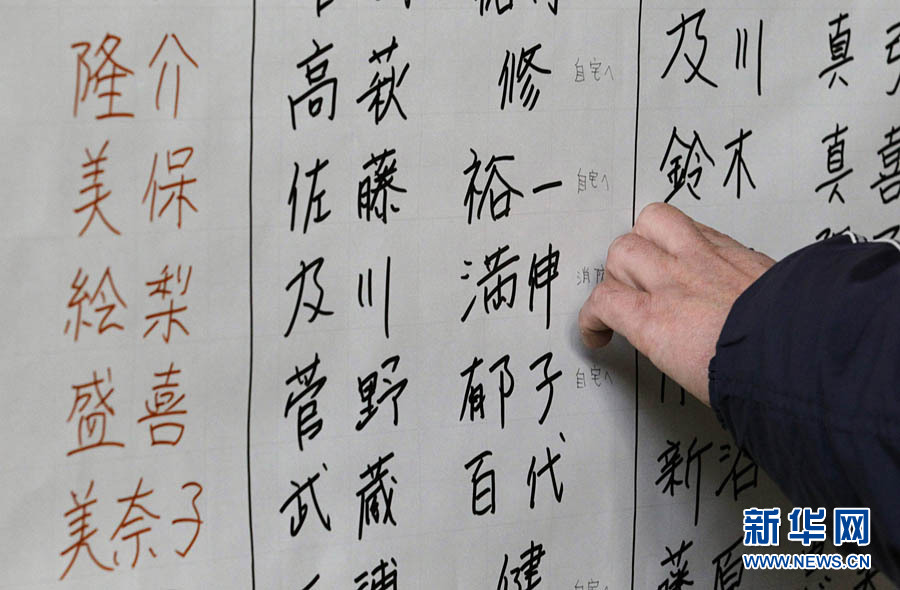 隆介
美保
絵梨
盛喜
美奈子
高萩 修 自宅へ
佐藤 裕一 自宅へ
及川 満伸 消防
菅野 郁子 自宅へ
武蔵 百代
健
及川 真
鈴木 真喜
新沼
藤原
新华网
WWW.NEWS.CN